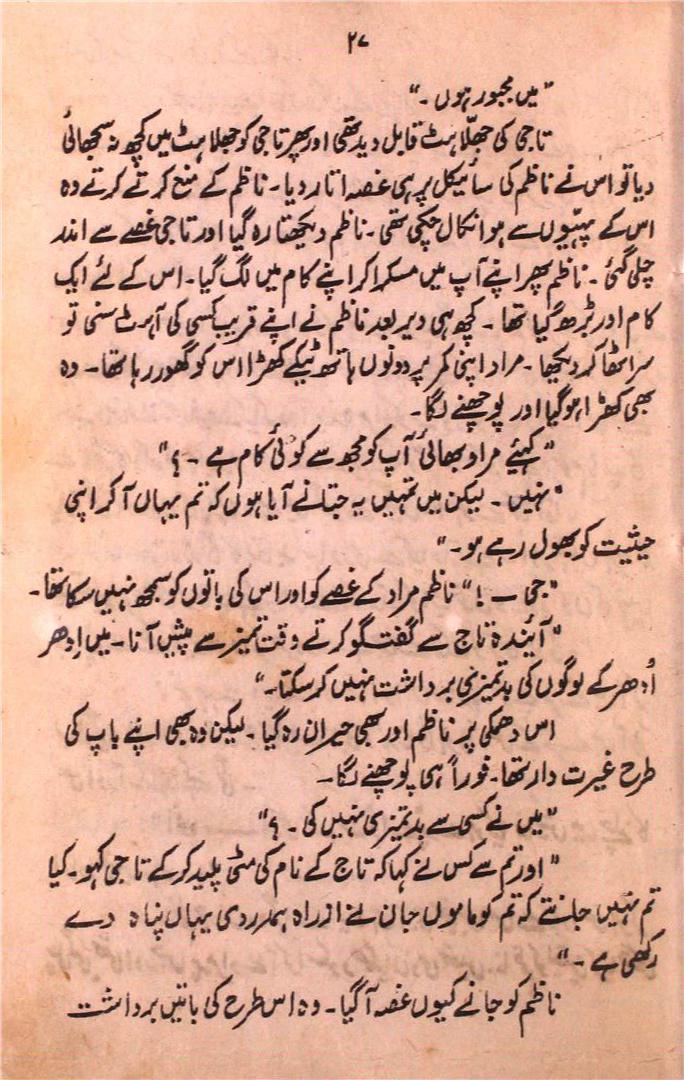 ۲۷
"میں مجبور ہوں۔"
تاجی کی جھلّاہٹ قابل دید تھی اور پھر تاجی کو جھلاہٹ میں کچھ نہ سجھائی
دیا تو اس نے ناظم کی سائیکل پر ہی غصہ اتار دیا۔ ناظم کے منع کرتے کرتے وہ
اس کے پہیّوں سے ہوا نکال چکی تھی۔ ناظم دیکھتا رہ گیا اور تاجی غصے سے اندر
چلی گئی۔ ناظم پھر اپنے آپ میں مسکرا کر اپنے کام میں لگ گیا۔ اس کے لئے ایک
کام اور بڑھ گیا تھا۔ کچھ ہی دیر بعد ناظم نے اپنے قریب کسی کی آہٹ سنی تو
سر اٹھا کر دیکھا۔ مراد اپنی کمر پر دونوں ہاتھ ٹیکے کھڑا اس کو گھور رہا تھا۔ وہ
بھی کھڑا ہو گیا اور پوچھنے لگا۔
"کہیئے مراد بھائی آپ کو مجھ سے کوئی کام ہے۔؟"
"نہیں۔ لیکن میں تمہیں یہ جتانے آیا ہوں کہ تم یہاں آکر اپنی
حیثیت کو بھول رہے ہو۔"
"جی ــ !" ناظم مراد کے غصے کو اور اس کی باتوں کو سمجھ نہیں سکا تھا۔
"آئیندہ تاج سے گفتگو کرتے وقت تمیز سے پیش آنا۔ میں اِدھر
اُدھر کے لوگوں کی بدتمیزی برداشت نہیں کر سکتا۔"
اس دھمکی پر ناظم اور بھی حیران رہ گیا۔ لیکن وہ بھی اپنے باپ کی
طرح غیرت دار تھا۔ فوراً ہی پوچھنے لگا۔
"میں نے کسی سے بدتمیزی نہیں کی۔؟"
"اور تم سے کس نے کہا کہ تاج کے نام کی مٹی پلید کر کے تاجی کہو۔ کیا
تم نہیں جانتے کہ تم کو ماموں جان نے از راہ ہمدردی یہاں پناہ دے
رکھی ہے۔"
ناظم کو جانے کیوں غصہ آگیا۔ وہ اس طرح کی باتیں برداشت